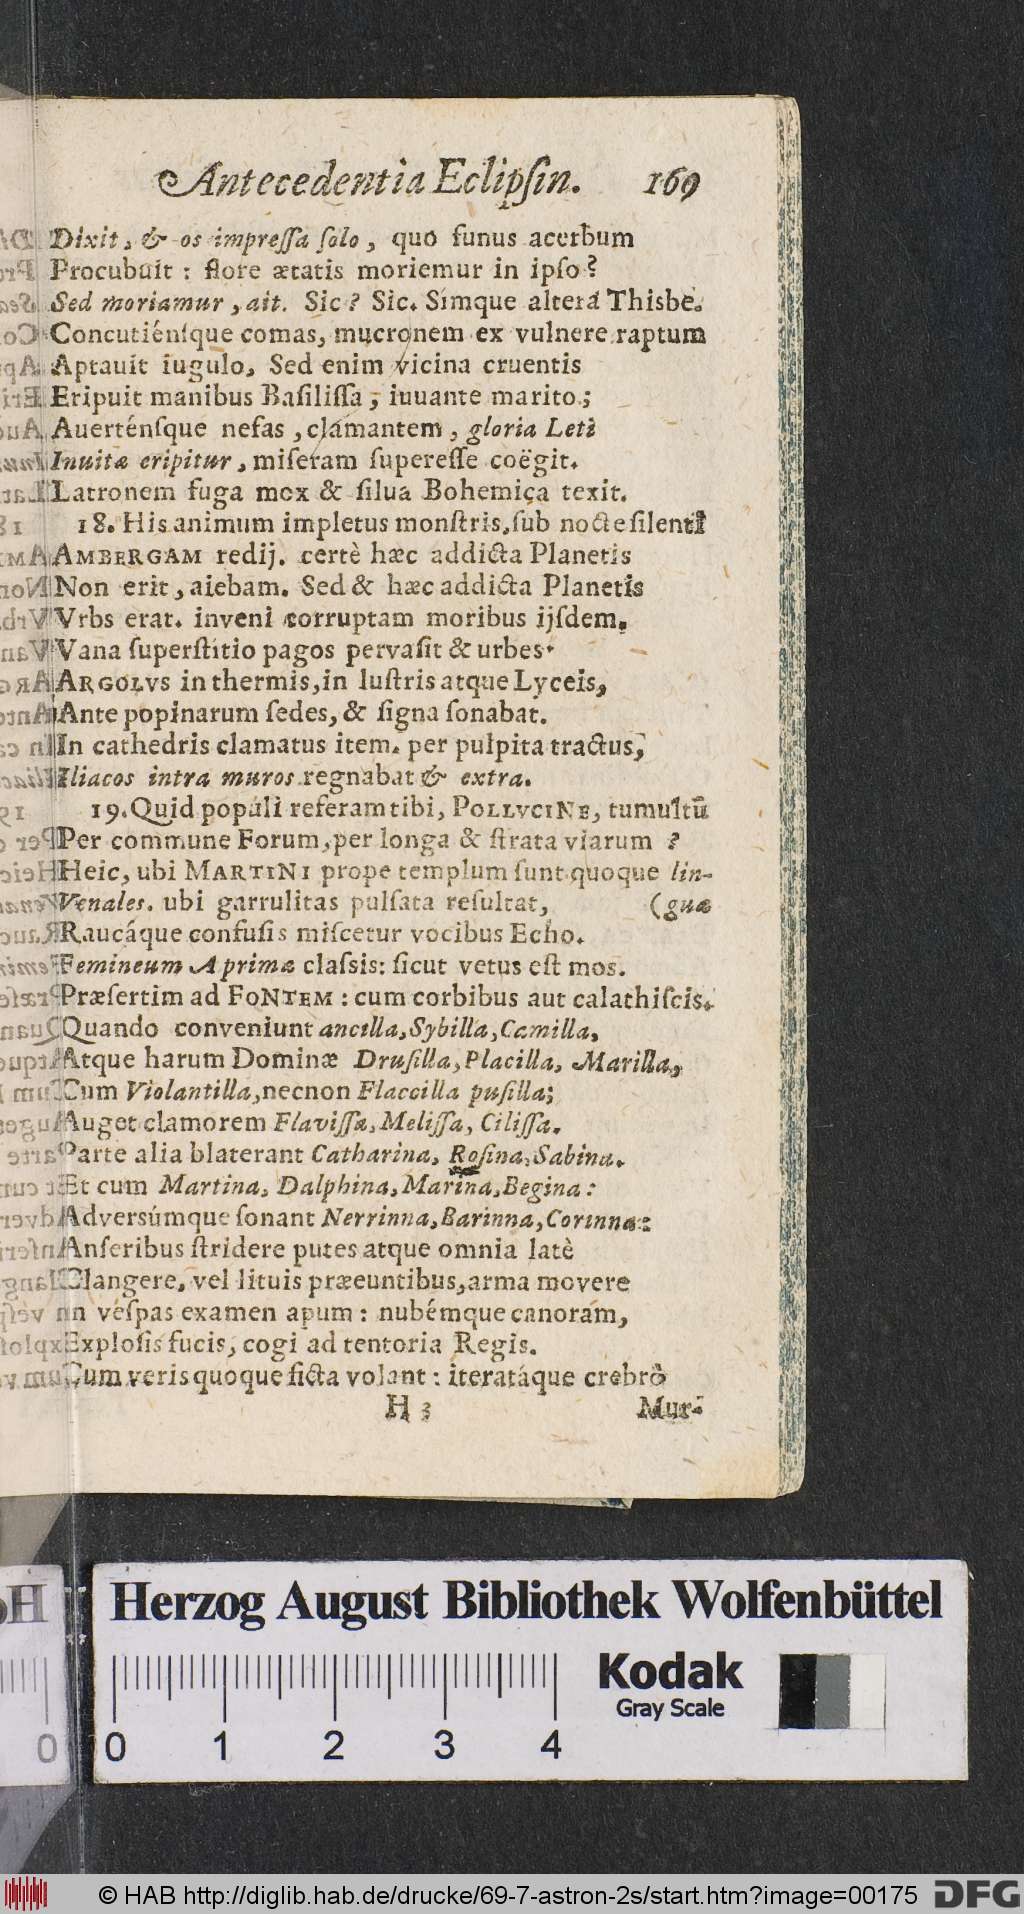 Antecedentia Eclipſin. 169
Dixit, & os impreſſa ſolo, quo funus acerbum
Procubuit : flore ætatis moriemur in ipſo?
Sed moriamur, ait. Sic? Sic. Simque altera Thisbe.
Concutiénſque comas, mucronem ex vulnere raptum
Aptauit iugulo, Sed enim vicina cruentis
Eripuit manibus Baſiliſſa, iuuante marito;
Auerténſque nefas, clámantem, gloria Leti
Inuitæ eripitur, miſeram ſupereſſe coëgit.
Latronem fuga mox & ſilua Bohemica texit.
18. His animum impletus monſtris, ſub nocte ſilenti
AMBERGAM redij. certè hæc addicta Planetis
Non erit, aiebam. Sed & hæc addicta Planetis
Vrbs erat. inveni corruptam moribus ijſdem.
Vana ſuperſtitio pagos pervaſit & urbes.
ARGOLVS in thermis, in luſtris atque Lyceis,
Ante popinarum ſedes, & ſigna ſonabat.
In cathedris clamatus item. per pulpita tractus,
Iliacos intra muros regnabat & extra.
19. Quid populi referam tibi, POLLVCINE, tumultū
Per commune Forum, per longa & ſtrata viarum ?
Heic, ubi MARTINI prope templum ſunt quoque lin-
Venales. ubi garrulitas pulſata reſultat, (guæ
Raucáque confuſis miſcetur vocibus Echo.
Femineum A primæ claſsis: ſicut vetus eſt mos.
Præſertim ad FONTEM : cum corbibus aut calathiſcis.
Quando conveniunt ancilla, Sybilla, Camilla,
Atque harum Dominæ Druſilla, Placilla, Marilla,
Cum Violantilla, necnon Flaccilla puſilla;
Auget clamorem Flaviſſa, Meliſſa, Ciliſſa.
Parte alia blaterant Catharina, Roſina, Sabina.
Et cum Martina, Dalphina, Marina, Begina:
Adversúmque ſonant Nerrinna, Barinna, Corinna:
Anſeribus ſtridere putes atque omnia latè
Clangere, vel lituis præeuntibus, arma movere
In véſpas examen apum : nubémque canoram,
Exploſis fucis, cogi ad tentoria Regis.
Cum veris quoque ficta volant : iteratáque crebrò
H 3 Mur-
Herzog August Bibliothek Wolfenbüttel
Kodak
Gray Scale
0 1 2 3 4
© HAB http://diglib.hab.de/drucke/69-7-astron-2s/start.htm?image=00175 DFG